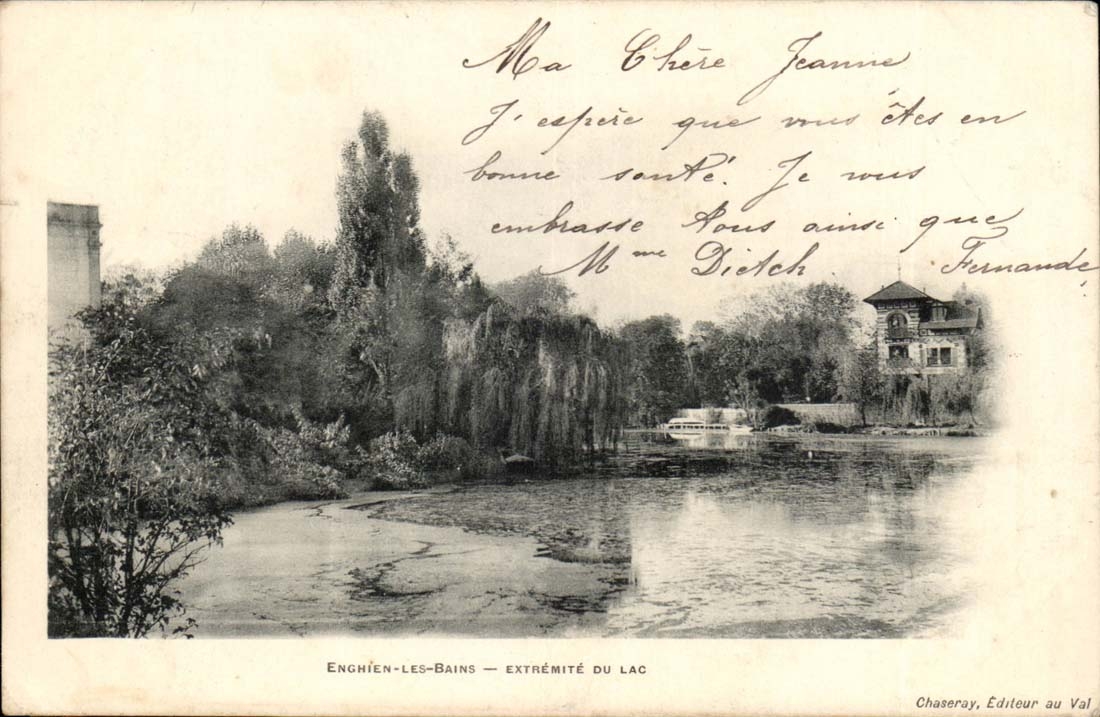 Ma Chère Jeanne
J'espère que vous êtes en
bonne santé. Je vous
embrasse Tous ainsi que
Mme Dietch Fernande
ENGHIEN-LES-BAINS — EXTRÉMITÉ DU LAC
Chaseray, Éditeur au Val